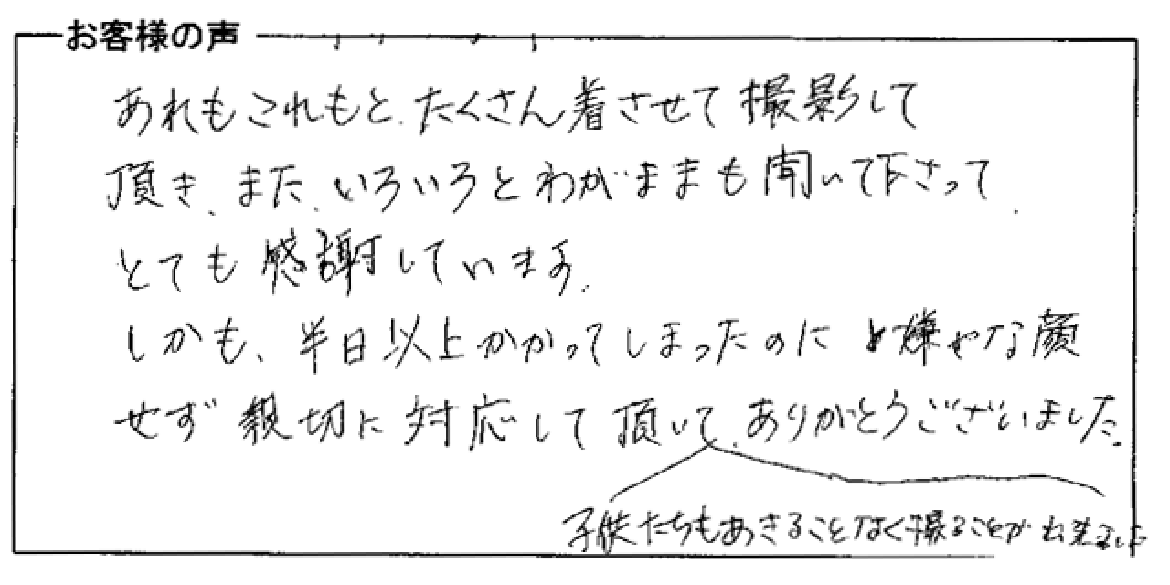 お客様の声
あれもこれもと、たくさん着させて撮影して
頂き、また、いろいろとわがままも聞いて下さって、
とても感謝しています。
しかも、半日以上かかってしまったのに嫌やな顔
せず親切に対応して頂いて、ありがとうございました。
子供たちもあきることなく撮ることが出来ました